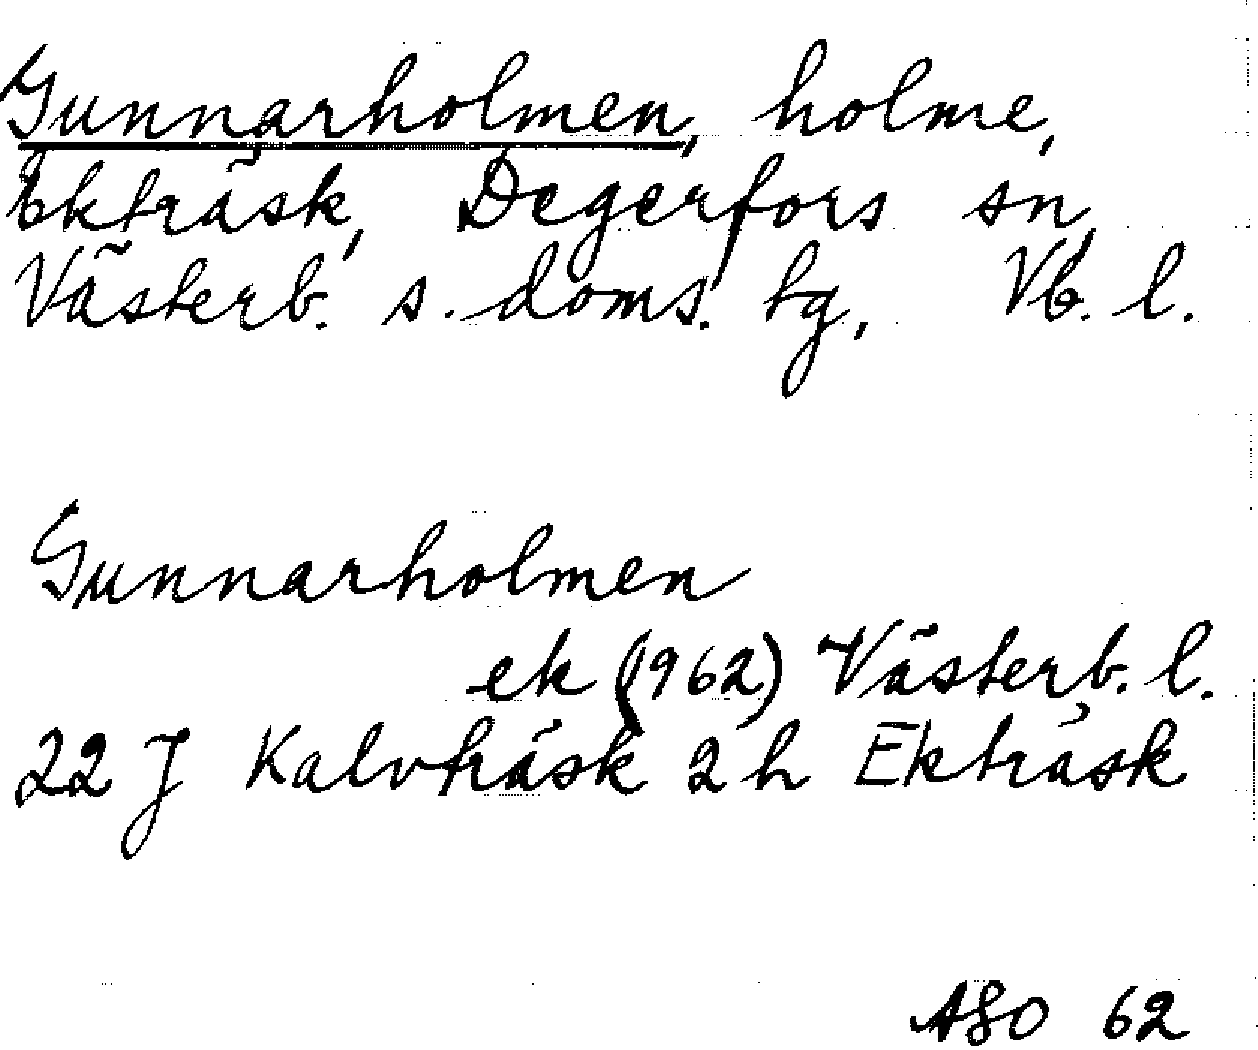 Gunnarholmen, holme,
Ekträsk, Degerfors sn,
Västerb. s. doms. tg, Vb. l.
Gunnarholmen
ek (1962) Västerb. l.
22 J Kalvträsk 2 h Ekträsk
ASO 62